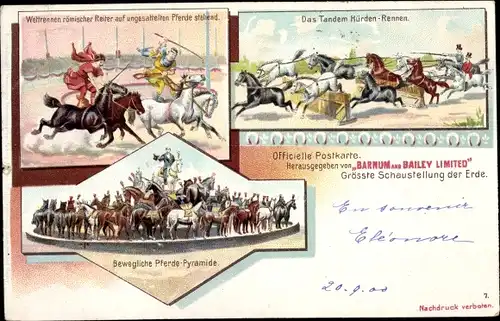 Wettrennen römischer Reiter auf ungesattelten Pferde stehend.
Das Tandem Hürden-Rennen.
Officielle Postkarte.
Herausgegeben von „BARNUM AND BAILEY LIMITED"
Grösste Schaustellung der Erde.
En souvenir
Eléonore
Bewegliche Pferde-Pyramide.
20.9.00
7.
Nachdruck verboten.